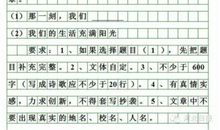 (1)那一刻,我们
(2)我们的生活充满阳光
要求:1、如果选择题目(1),先把题
目补充完整。2、文体自定。3、不少于600
字(写成诗歌应不少于20行)。4、有真情实
感,力求创新,不得套写抄袭。5、文章中不
要出现真实的地名、校名、人名。